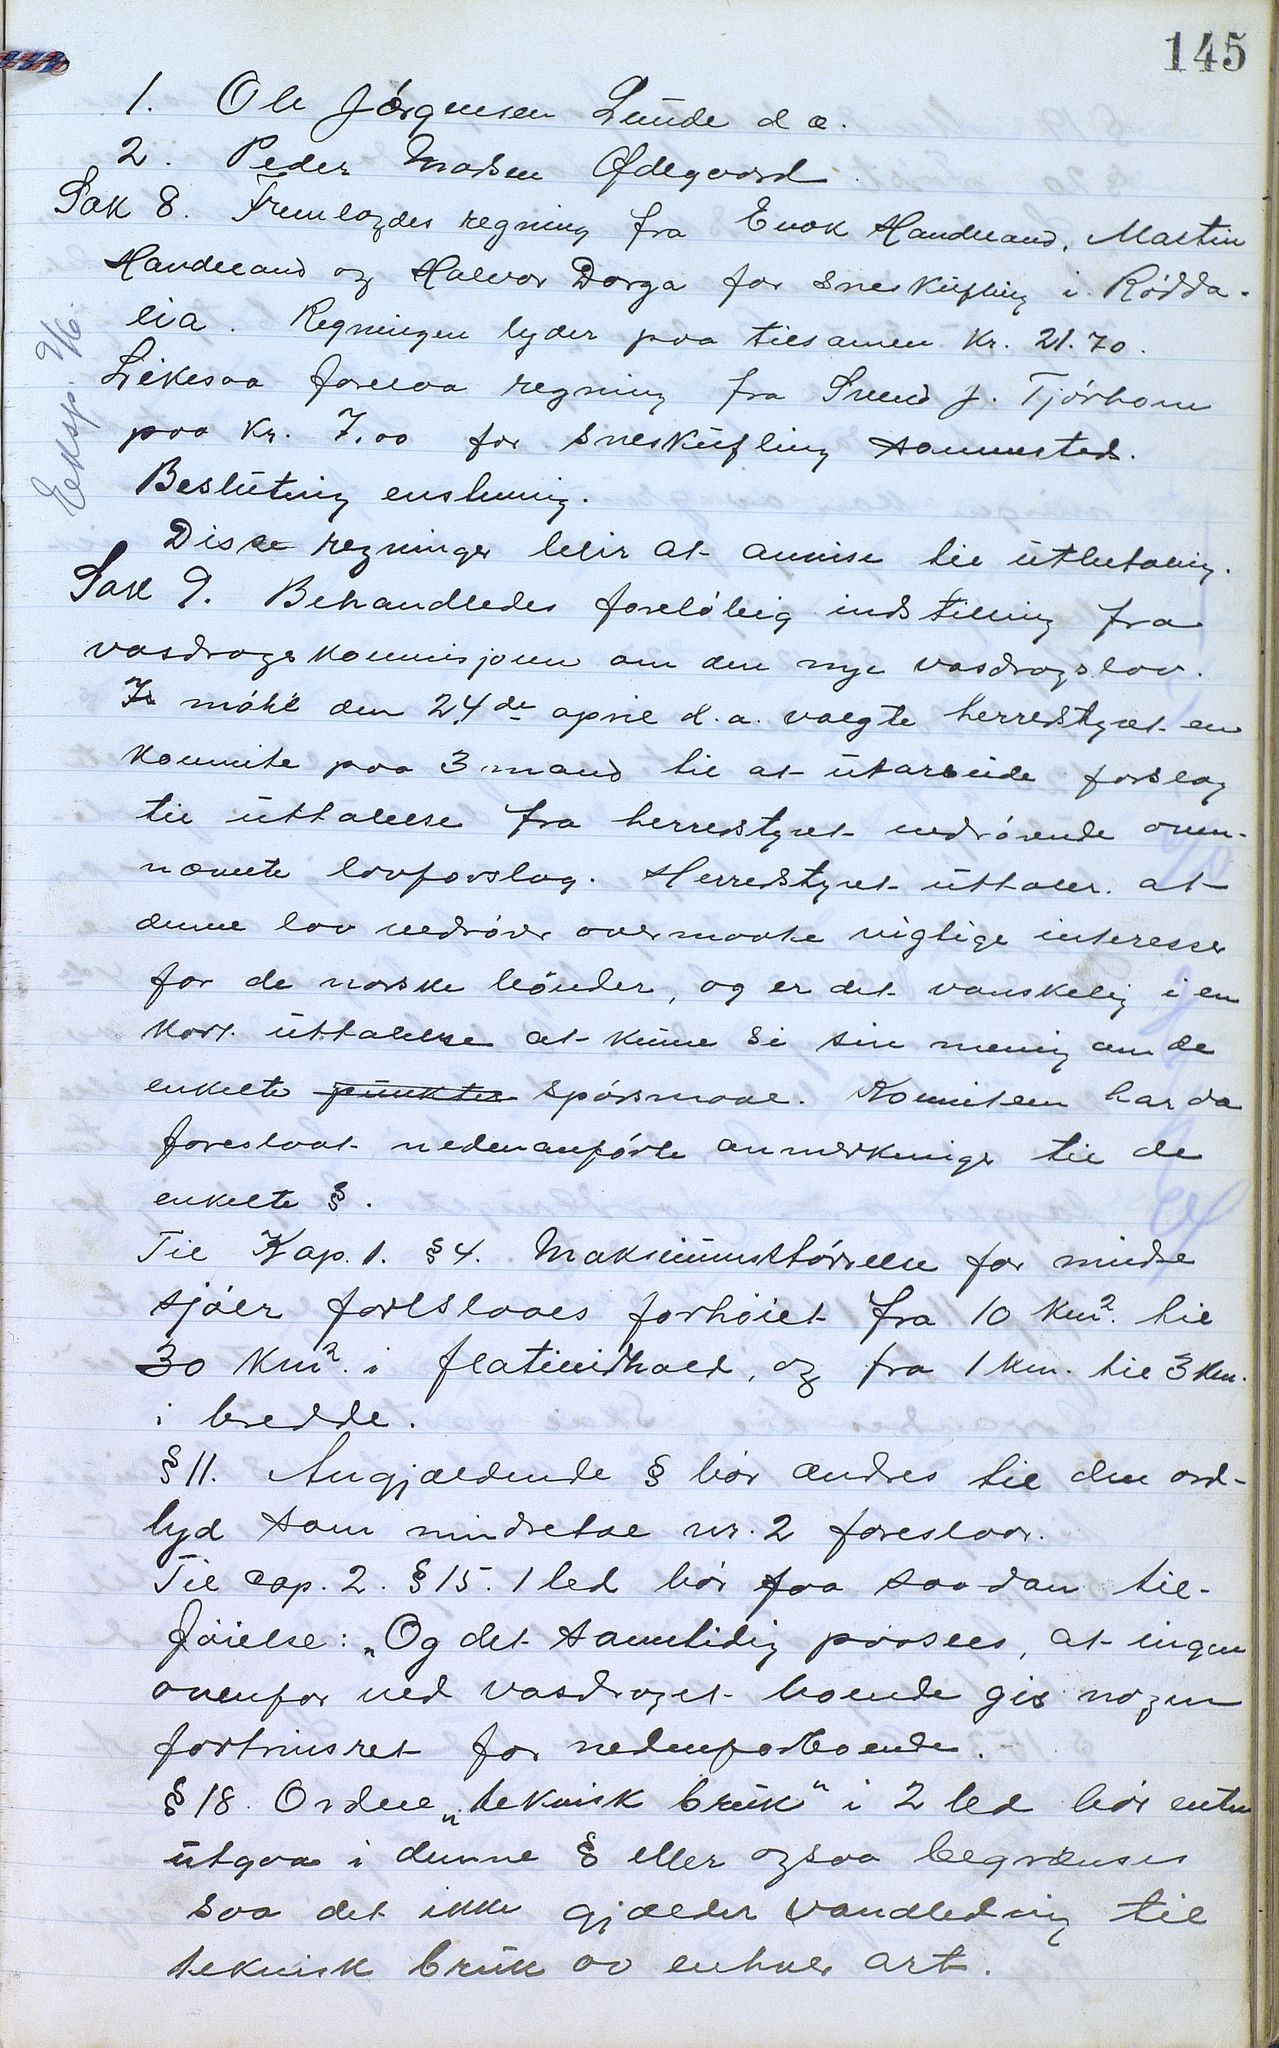 145
1. Ole Jørgensen Lunde d æ.
2. Peder Madsen Ødegaard.
Sak 8. Fremlagdes regning fra Enok Handeland, Martin
Handeland og Halvor Dorga for sneskufling i Rødda-
lia. Regningen lyder paa tilsamen Kr. 21.70.
Likesaa forelaa regning fra Svend J. Tjørhom
paa Kr. 7.00 for sneskufling sammested.
Beslutning enstemmig.
Disse regninger blir at anvise til utbetaling.
Eksp. 2/6.
Sak 9. Behandledes foreløbig indstilling fra
vasdragskommisjonen om den nye vasdragslov.
I møte den 24de april d.a. valgte herredstyret en
komite paa 3 mand til at utarbeide forslag
til uttalelse fra herredstyret vedrørende oven-
nævnte lovforslag. Herredstyret uttaler at
denne lov vedrører overmaate vigtige interesser
for de norske bønder, og er det vanskelig i en
kort uttalelse at kunne si sin mening om de
enkelte punkter spørsmaal. Komiteen har da
foreslaat nedenanførte anmerkninger til de
enkelte §.
Til Kap. 1. § 4. Maksimumstørrelse for mindre
sjøer foreslaaes forhøiet fra 10 km². til
30 km². i flateindhold, og fra 1 km. til 3 km.
i bredde.
§ 11. Angjældende § bør ændres til den ord-
lyd som mindretal nr. 2 foreslaar.
Til cap. 2. § 15. 1 led bør faa saadan til-
føielse: „Og det samtidig paasees, at ingen
ovenfor ved vasdraget boende gis nogen
fortrinsret for nedenforboende.
§ 18. Ordene „teknisk bruk" i 2 led bør enten
utgaa i denne § eller ogsaa begrænses
saa det ikke gjælder vandledning til
teknisk bruk av enhver art.